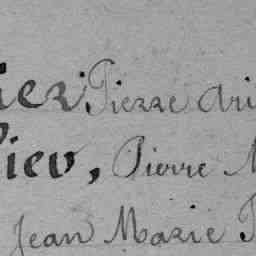 ier Pierre Ari
iev, Pierre M
Jean Marie